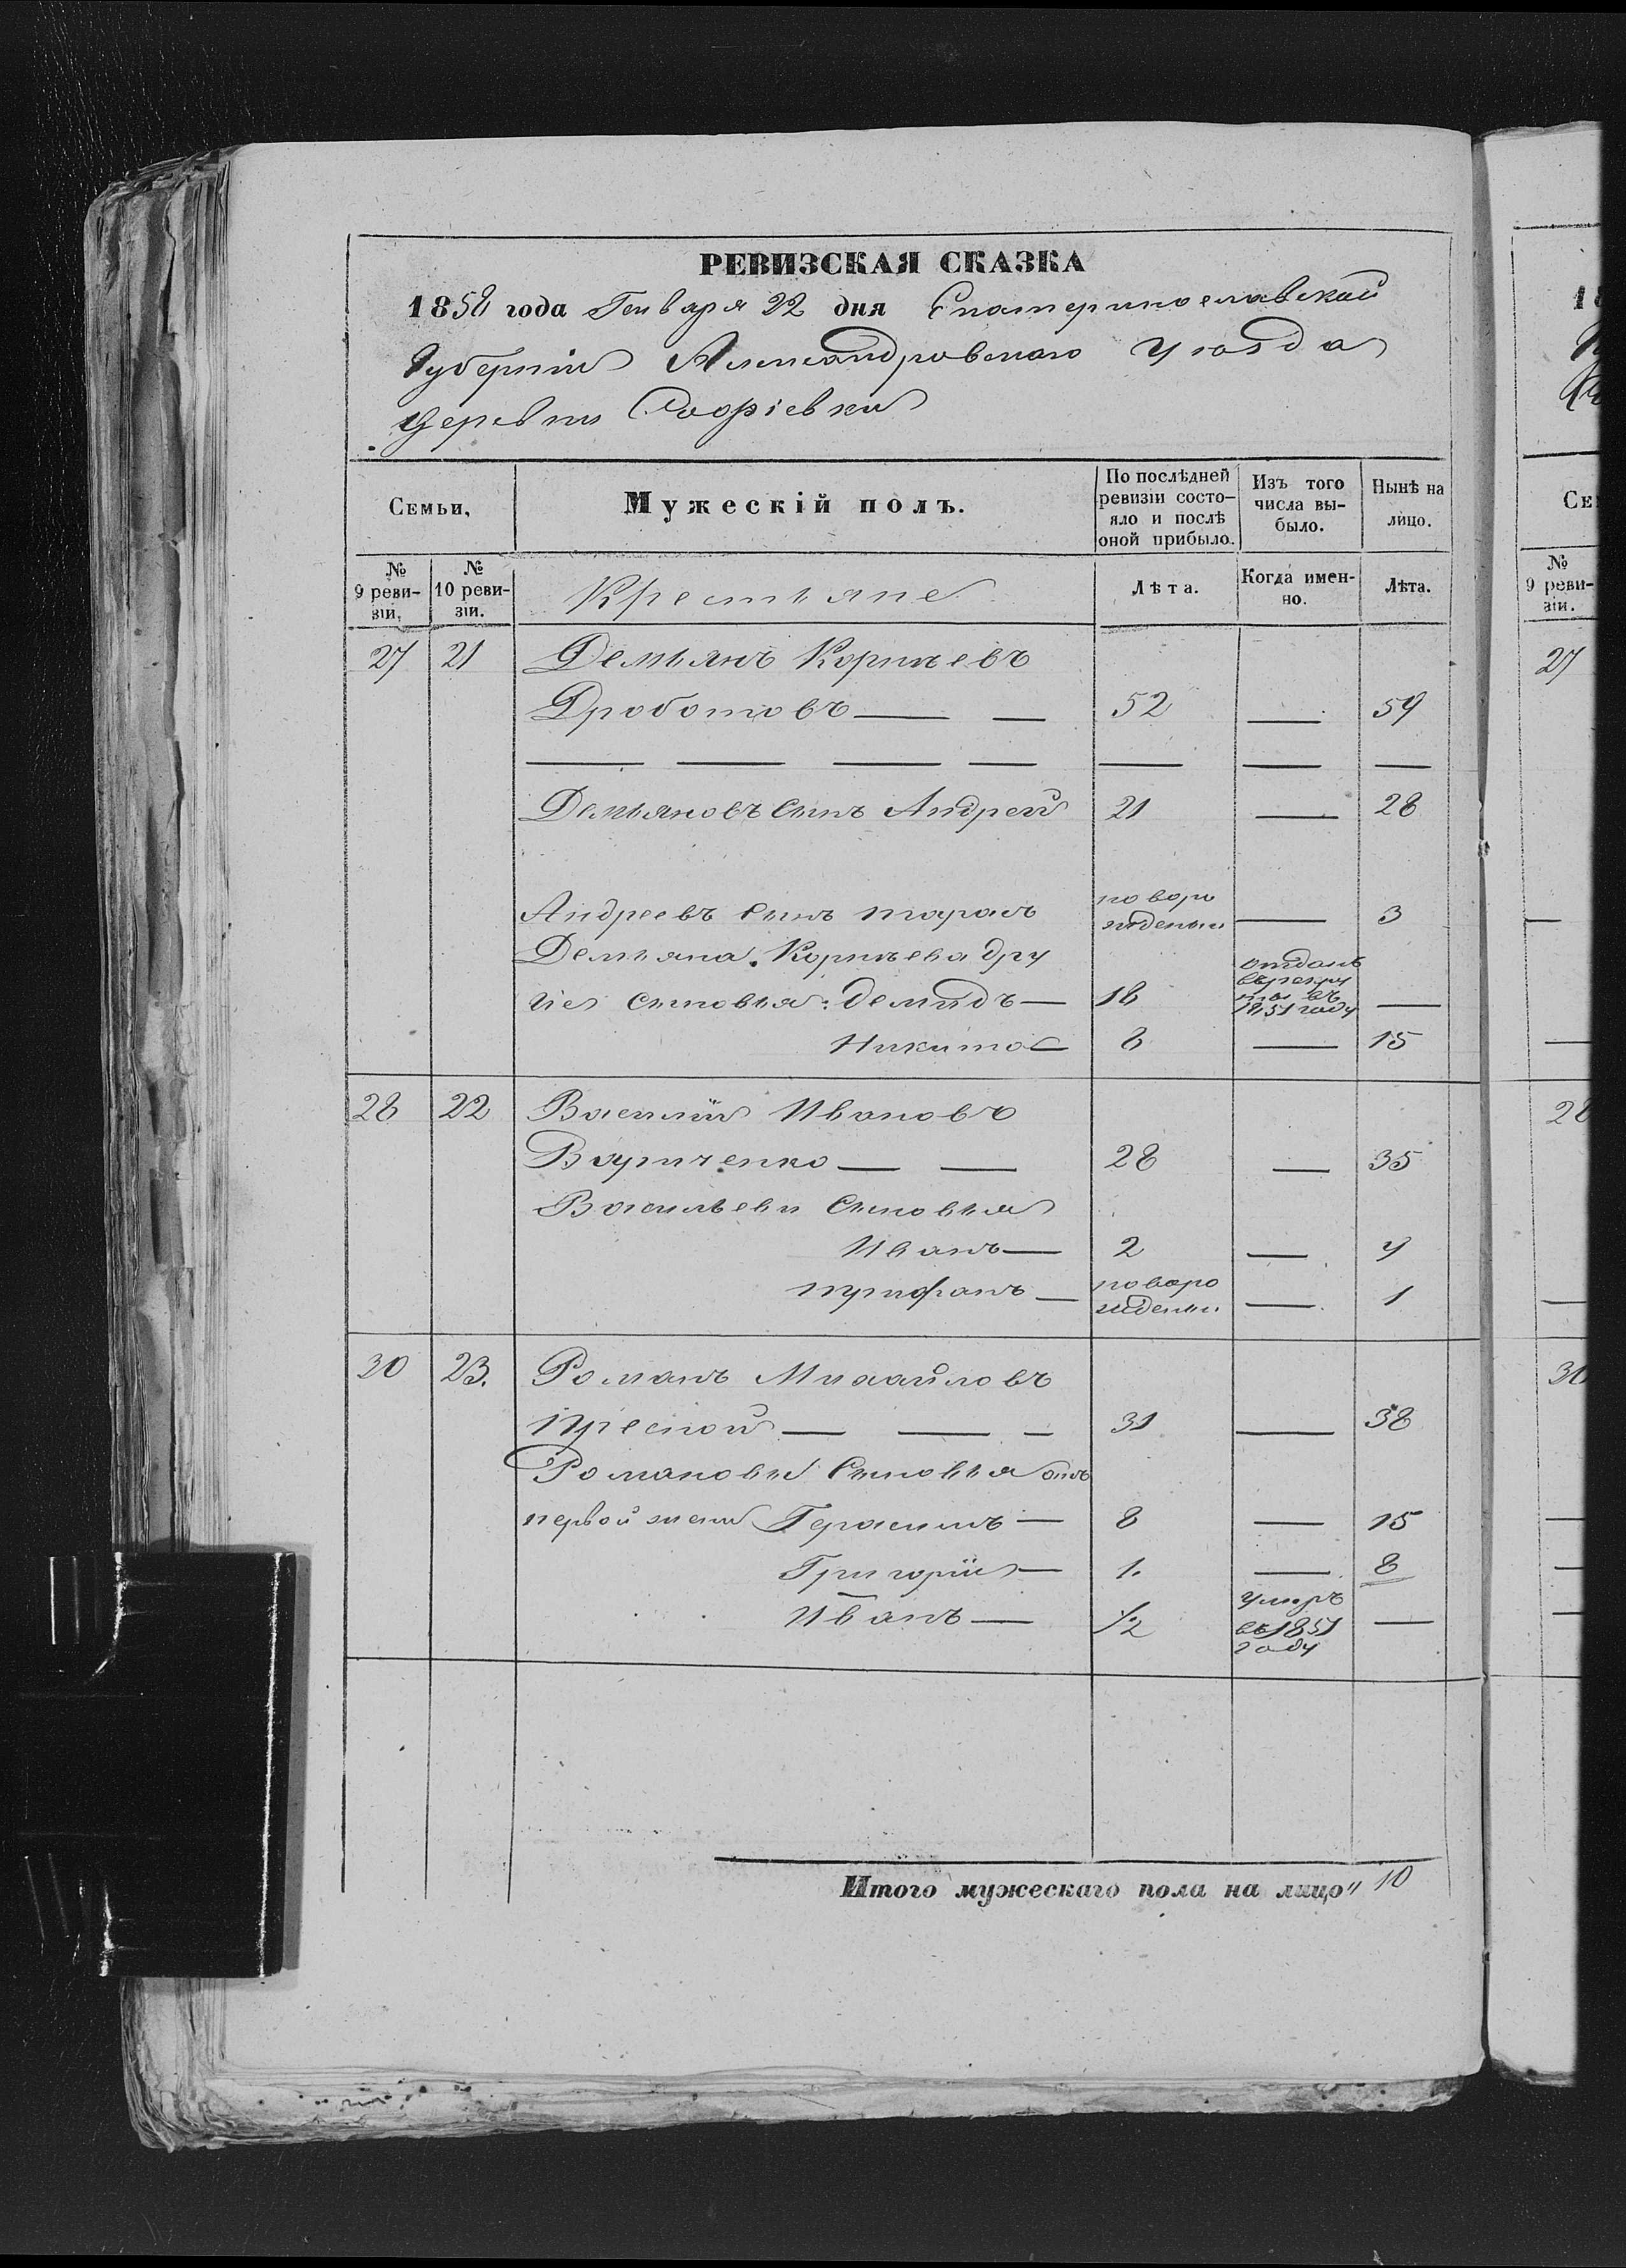 РЕВИЗСКАЯ СКАЗКА
1858 года Генваря 22 дня Екатеринославской
Губерніи Александровскаго уезда
Деревни Софіевки
Семьи,
Мужескій полъ.
По послѣдней ревизіи состо-
яло и послѣ оной прибыло.
Изъ того числа вы-
было.
Нынѣ на лицо.
№ 9 реви-
зіи.
№ 10 реви-
зіи.
Крестьяне
Лѣта.
Когда имен-
но.
Лѣта.
27 21 Демьянъ Корнѣевъ
Дроботовъ — — 52 — 59
— — — — — — —
Демьяновъ сынъ Андрей 21 — 28
Андреевъ сынъ тарасъ новоро
жденый — 3
Демьяна Корнѣева дру
гіе сыновья: демидъ — 18 отданъ
въ рекру
ты въ
1851 году —
Никита — 8 — 15
28 22 Василій Ивановъ
— — 28 — 35
Васильевы сыновья
Иванъ — 2 — 9
трифанъ — новоро
жденый — 1
30 23. Романъ Михайловъ
— — — 31 — 38
Романовы сыновья отъ
первой жены Герасимъ — 8 — 15
Григорій — 1. — 8
Иванъ — 1/2 умеръ
въ 1851
году —
Итого мужескаго пола на лицо " 10
1
Се
№ 9 реви-
зіи.
27
28
30